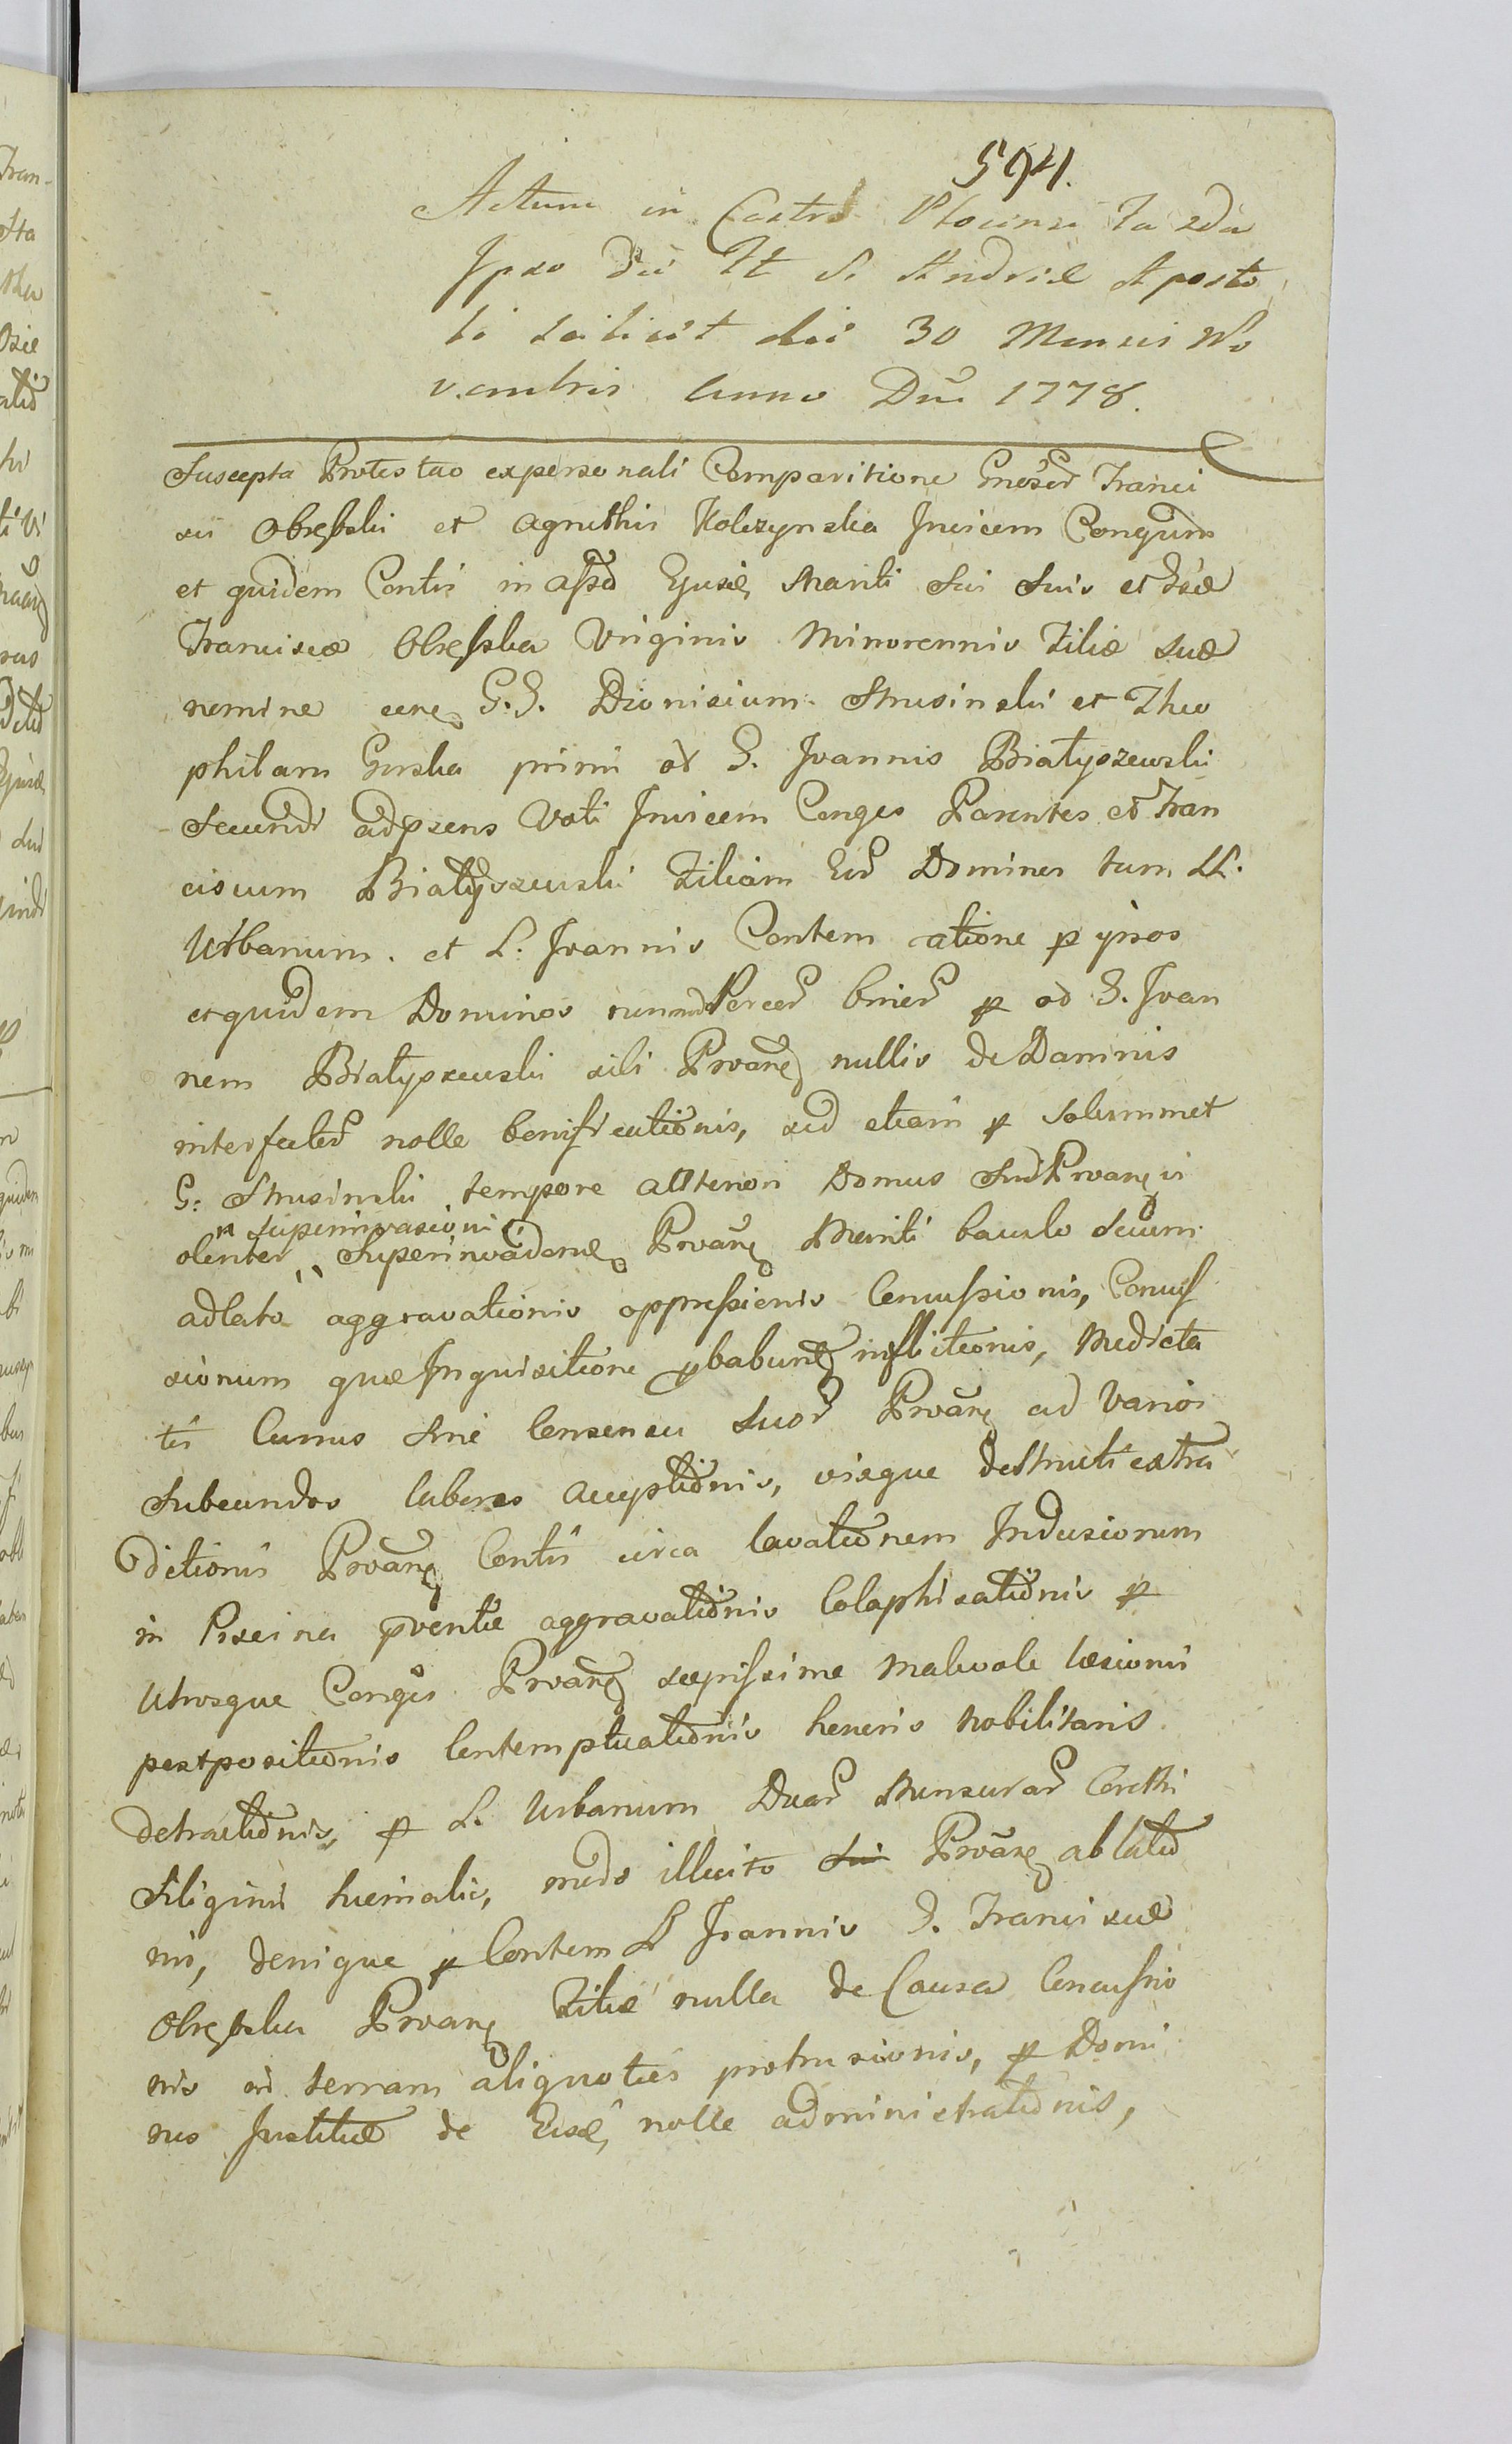 594.
Actum in Castro Plocensi Fa 2da
Ipso Die Ft S. Andreæ Aposto
li scilicet die 30 Mensis No
vembris Anno Dni 1778.
Suscepta Protestao expersonali Comparitione Gnosor Franci
sci Obrębski et Agnethis Kolczynska Invicem Congum
et quidem Contis in assa Ejusd Mariti Sui Suis et
Franciscæ Obrębska Virginis Minorennis Filiæ suæ
nomine cenę G.G. Dionisium Strusinski et Theo
philam Gurska primi ad G. Joannis Białyszewski
Secundi adpræns Voti Invicem Conges Parentes et Fran
ciscum Białyszewski Filiam Eor Dominos tum LL.
Urbanum et L. Joannis Contem atione p ipsos
etquidem Dominos Percer p ad G. Joan
nem Białyszewski sibi Proanę nullis de Damnis
interfectis nolle bonificationis, sed etiam p solummet
G: Strusinski tempore alteriori Domus Suæ Proanę vi
superinvasionis
olenter Superinvadenę Proanę Mariti baculo secum
adlato aggravationis oppressionis Concussionis, Concus
sionum quæ Inquisitione pbabunę inflictionis, Medieta
tis Cunus Sine Consensu Suor Proanę ad Varios
Subeundos labores acceptionis, visque destructi extra
ditionis Proanę Contis circa lavationem Indusiorum
in Piscina pventæ aggravationis Colaphisationis p
Utrosque Conges Proanę sæpissime malevole læsionis
postpositionis Contemptuationis honoris Nobilitaris
detractionis, p L. Urbanum Duar Mensurar Coretti
Siliginis hiemalis, modo illicito Sui Proanę ablatio
nis, denique p Contem L Joannis G. Franciscæ
Obrębska Proanę Filiæ nulla de Causa Concussio
nis in terram aliquoties protrusionis, p Domi
nos Justitiæ de Eisd, nolle administrationis,